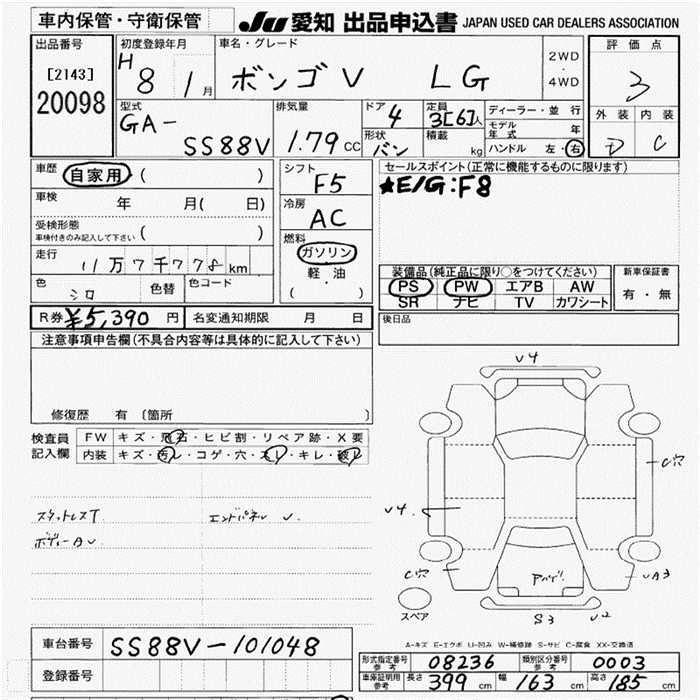 車内保管・守衛保管
JU 愛知 出品申込書 JAPAN USED CAR DEALERS ASSOCIATION
出品番号
[2143]
20098
初度登録年月
H 8 1 月
車名・グレード
ボンゴV LG
2WD
・
4WD
評価点
3
外装 内装
D C
型式
GA-
SS88V
排気量
1.79 CC
ドア
4
定員
3[6]人
形状
バン
積載
kg
ディーラー・並行
モデル年式 年
ハンドル 左・右
車歴
自家用 ( )
車検 年 月( 日)
受検形態
車検付きのみ記入して下さい ( )
走行
11万7千778km
色
シロ
色替
色コード
シフト
F5
冷房
AC
燃料
ガソリン
軽・油
( )
セールスポイント(正常に機能するものに限ります)
★E/G:F8
装備品(純正品に限り○をつけてください)
PS PW エアB AW
SR ナビ TV カワシート
新車保証書
有・無
R券 ¥5,390 円
名変通知期限 月 日
後日品
注意事項申告欄(不具合内容等は具体的に記入して下さい)
修復歴 有 〔箇所 〕
検査員
記入欄
FW キズ・飛石・ヒビ割・リペア跡・X要
内装 キズ・汚レ・コゲ・穴・スレ・キレ・破レ
エンドパネル V
ボディーAV
V4
C穴
V4
C穴
VA3
S3
V2
スペア
A-キズ E-エクボ U-凹み W-補修跡 S-サビ C-腐食 XX-交換済
車台番号 SS88V-101048
登録番号
形式指定番号
参考
08236
類別区分番号
参考
0003
車庫証明用
参考
長さ 399 cm 幅 163 cm 高さ 185 cm